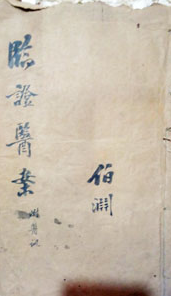 臨證醫案
伯淵